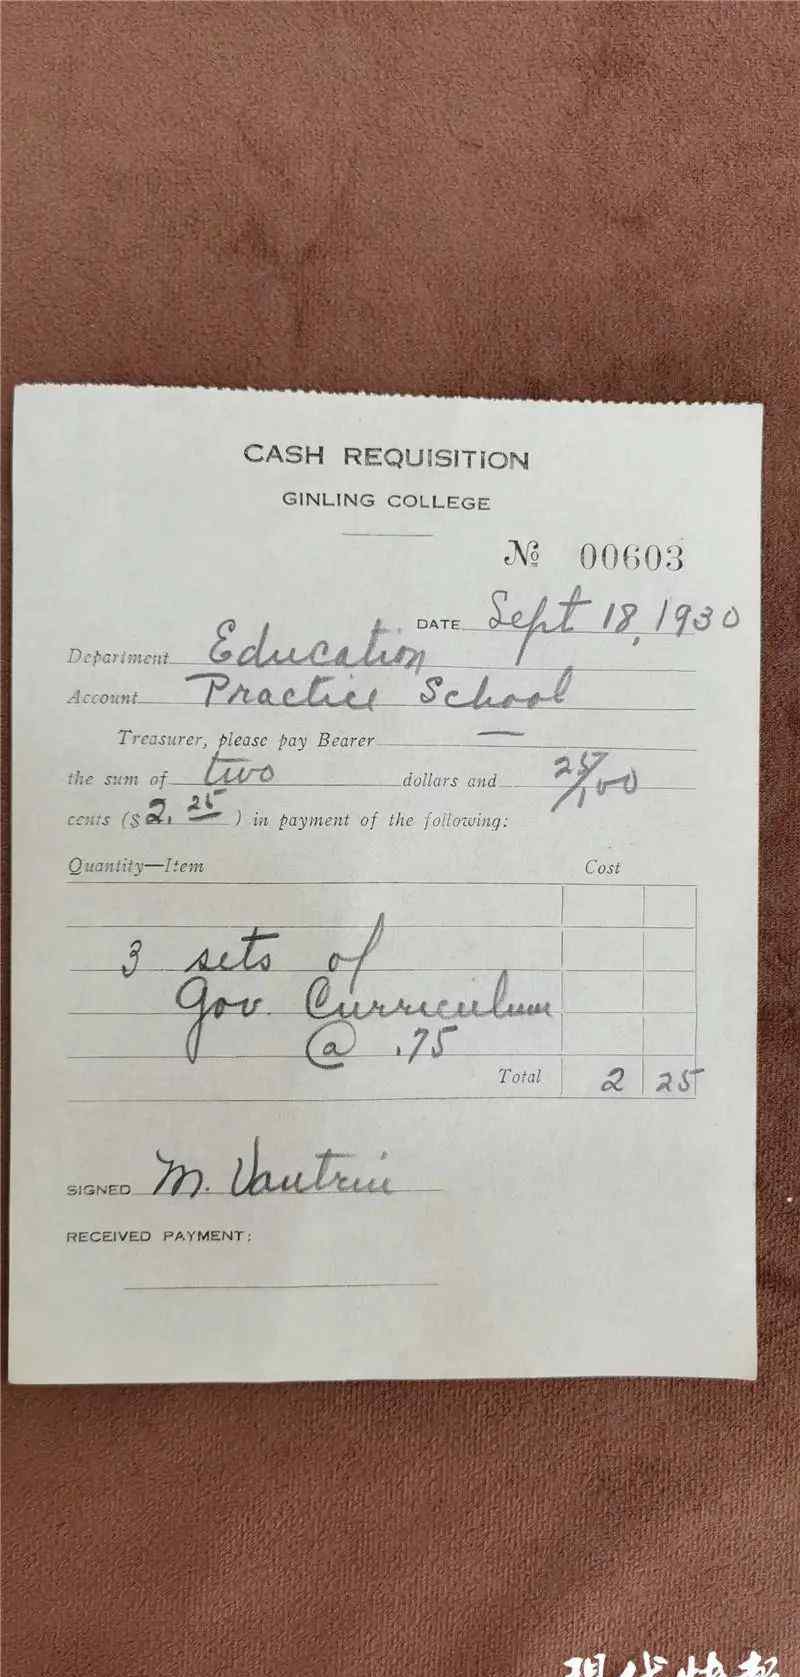 CASH REQUISITION
GINLING COLLEGE
№ 00603
DATE Sept 18, 1930
Department Education
Account Practice School
Treasurer, please pay Bearer —
the sum of two dollars and 25/100
cents ($ 2.25 ) in payment of the following:
Quantity—Item Cost
3 sets of
Gov. Curriculum
@ .75
Total 2 25
SIGNED M. Vautrin
RECEIVED PAYMENT:
现代快报